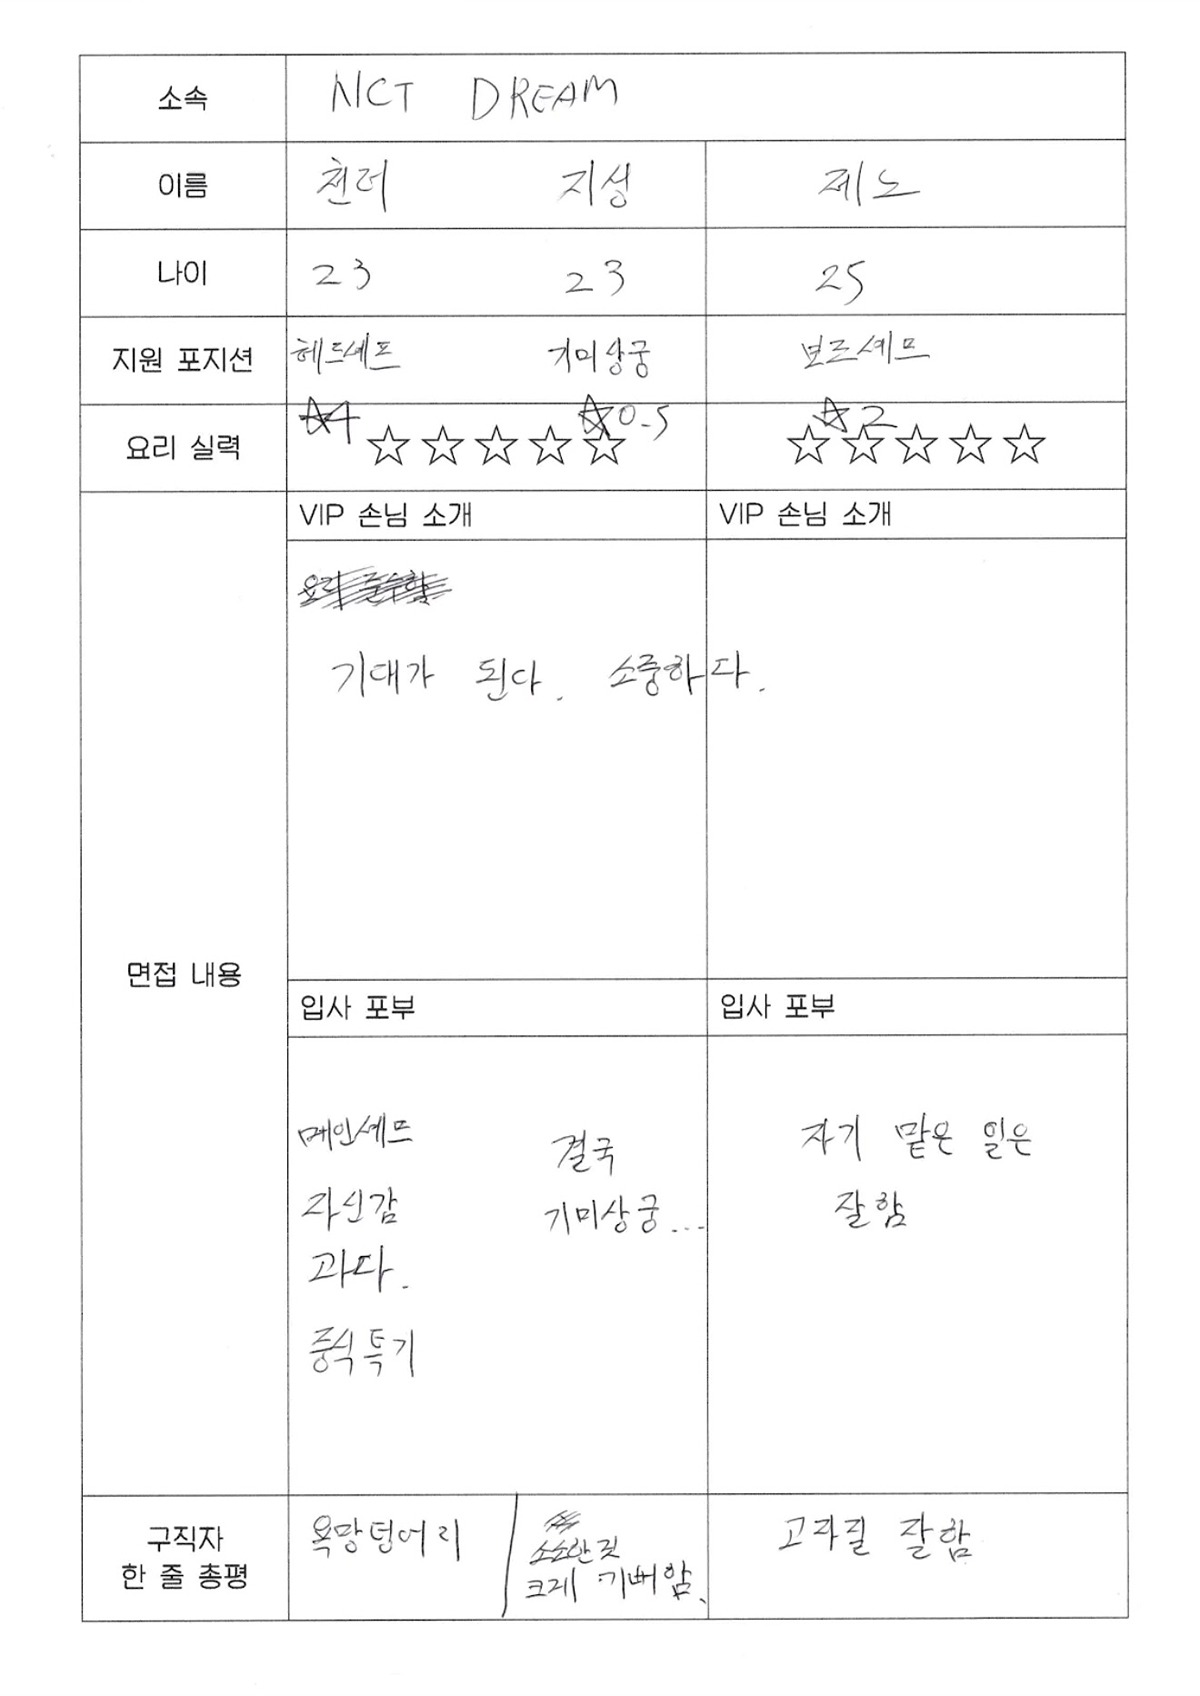 소속 NCT DREAM
이름 천러 지성 제노
나이 23 23 25
지원 포지션 헤드셰프 기미상궁 보조셰프
☆4 ☆0.5 ☆2
요리 실력 ☆☆☆☆☆ ☆☆☆☆☆
면접 내용
VIP 손님 소개 VIP 손님 소개
기대가 된다. 소중하다.
입사 포부 입사 포부
메인셰프 결국 자기 맡은 일은
자신감 기미상궁... 잘함
과다.
중식특기
구직자
한 줄 총평
욕망덩어리 소소한 것 고자질 잘함
크게 기뻐함.